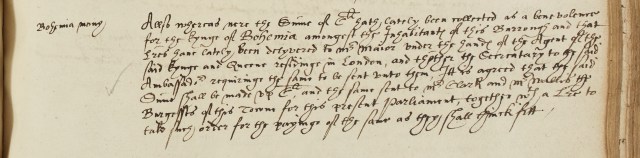 Bohemia mony
Allso whereas nere the Summe of Cli hath lately been collected as a benevolence
for the Kynge of Bohemia amongest the Inhabitants of this Burrough and that
lres have lately been delyvered to mr Maior under the hande of the Agent of the
said Kynge and Queene residinge in London, and the Secretary to the said
Ambassador requiringe the same to be sent unto them. It is agreed that the said
Summe shall be made up Cli, and the same sent to mr Clark and mr the
Burgesses of this Towne for this present Parliament, together wth a Lre to
take such order for the payinge of the same as they shall thinck fitt